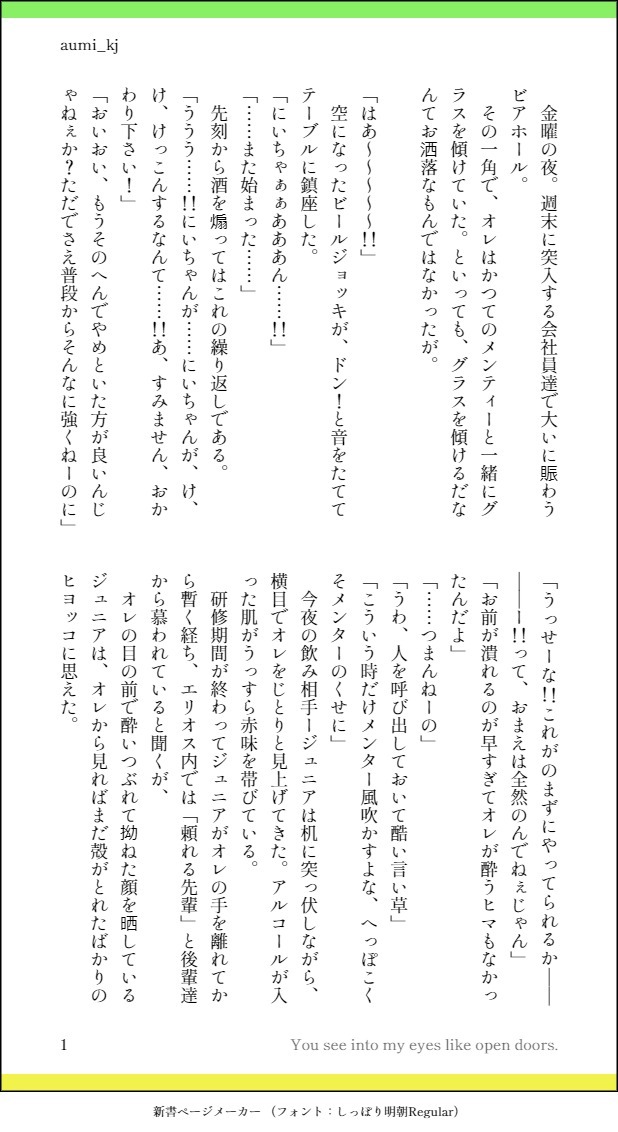 aumi_kj
　金曜の夜。週末に突入する会社員達で大いに賑わう
ビアホール。
　その一角で、オレはかつてのメンティーと一緒にグ
ラスを傾けていた。といっても、グラスを傾けるだな
んてお洒落なもんではなかったが。
「はあ～～～～～!!」
　空になったビールジョッキが、ドン！と音をたてて
テーブルに鎮座した。
「にいちゃぁぁあああん……!!」
「……また始まった……」
　先刻から酒を煽ってはこれの繰り返しである。
「ううう……!!にいちゃんが……にいちゃんが、け、
け、けっこんするなんて……!!あ、すみません、おか
わり下さい！」
「おいおい、もうそのへんでやめといた方が良いんじ
ゃねぇか？ただでさえ普段からそんなに強くねーのに」
「うっせーな!!これがのまずにやってられるか――
――ー!!って、おまえは全然のんでねぇじゃん」
「お前が潰れるのが早すぎてオレが酔うヒマもなかっ
たんだよ」
「……つまんねーの」
「うわ、人を呼び出しておいて酷い言い草」
「こういう時だけメンター風吹かすよな、へっぽこく
そメンターのくせに」
　今夜の飲み相手ージュニアは机に突っ伏しながら、
横目でオレをじとりと見上げてきた。アルコールが入
った肌がうっすら赤味を帯びている。
　研修期間が終わってジュニアがオレの手を離れてか
ら暫く経ち、エリオス内では「頼れる先輩」と後輩達
から慕われていると聞くが、
　オレの目の前で酔いつぶれて拗ねた顔を晒している
ジュニアは、オレから見ればまだ殻がとれたばかりの
ヒヨッコに思えた。
1
You see into my eyes like open doors.
新書ページメーカー（フォント：しっぽり明朝Regular）